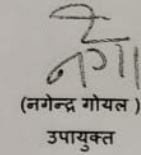 (नगेन्द्र गोयल )
उपायुक्त